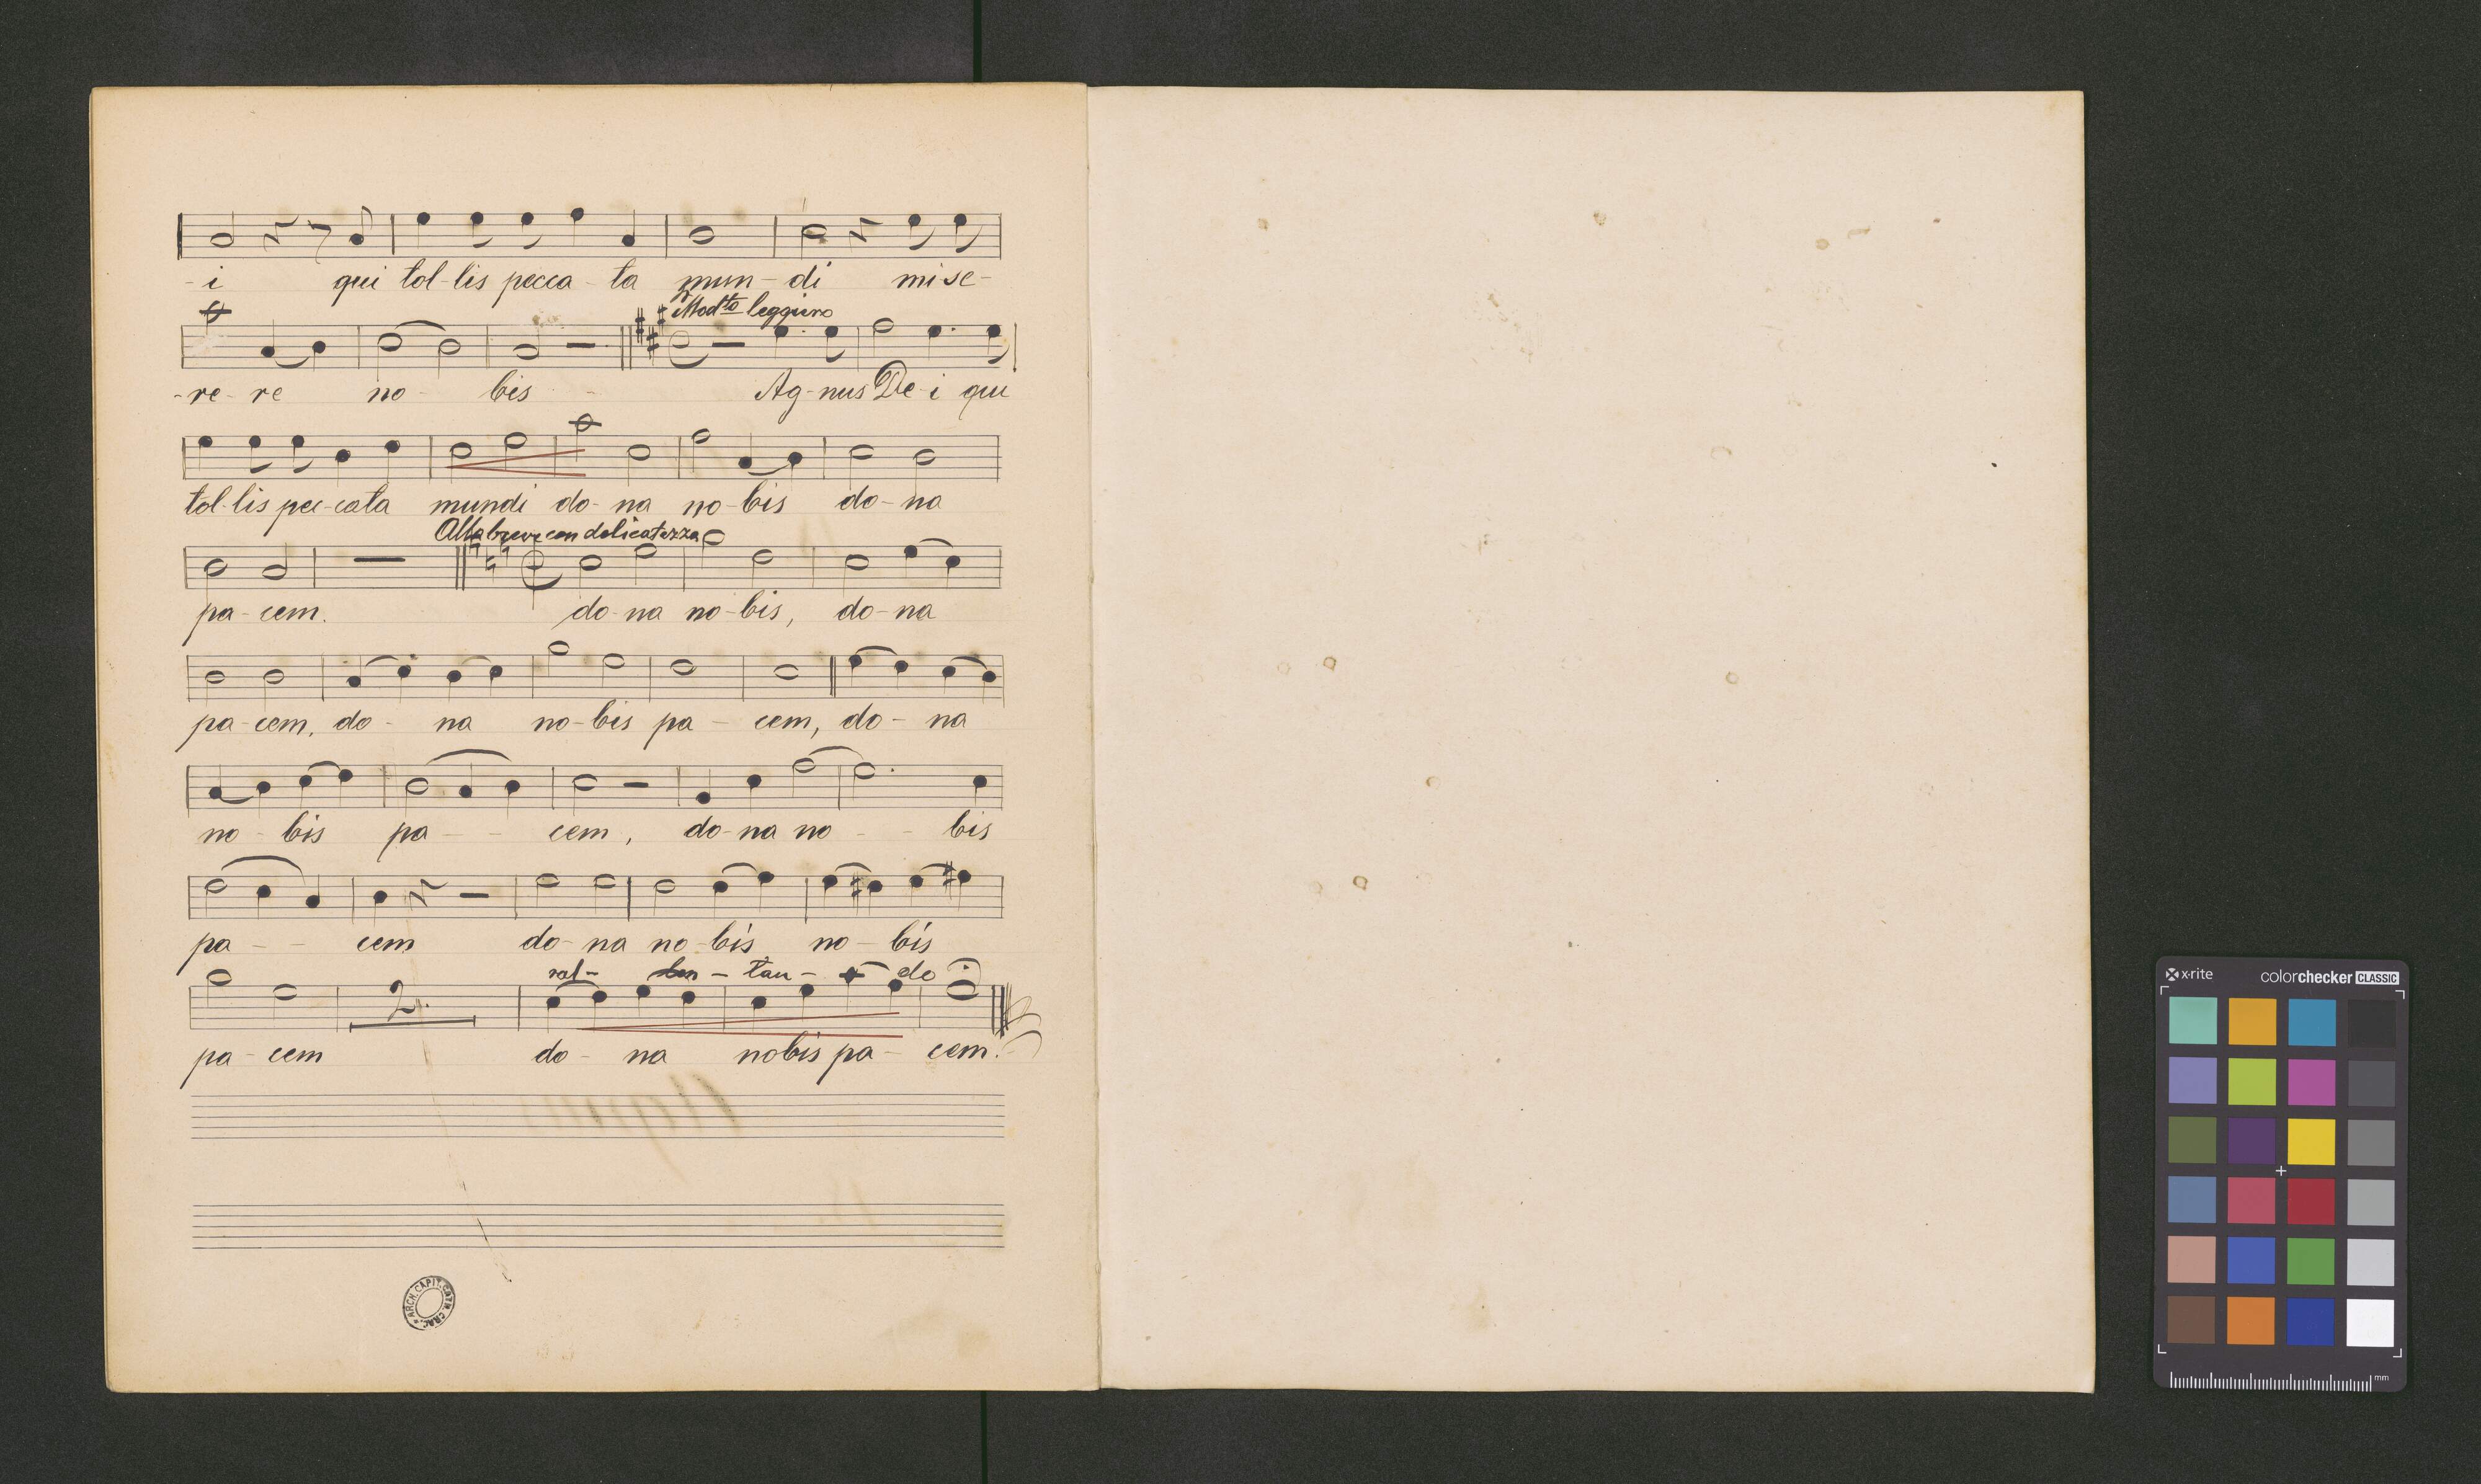 -i qui tol-lis pecca-ta mun-di mi-se-
Modto leggiero
-re-re no-bis - Ag-nus De-i qui
tol-lis pec-cata mundi do-na no-bis do-na
Alla breve con delicatezza
pa-cem. do-na no-bis, do-na
pa-cem, do-na no-bis pa-cem, do-na
no-bis pa--cem, do-na no--bis
pa--cem do-na no-bis no-bis
ral-len-tan-do
2.
pa-cem do-na nobis pa-cem.
ARCH. CAPIT. CATH. CRAC.
x-rite colorchecker CLASSIC
mm